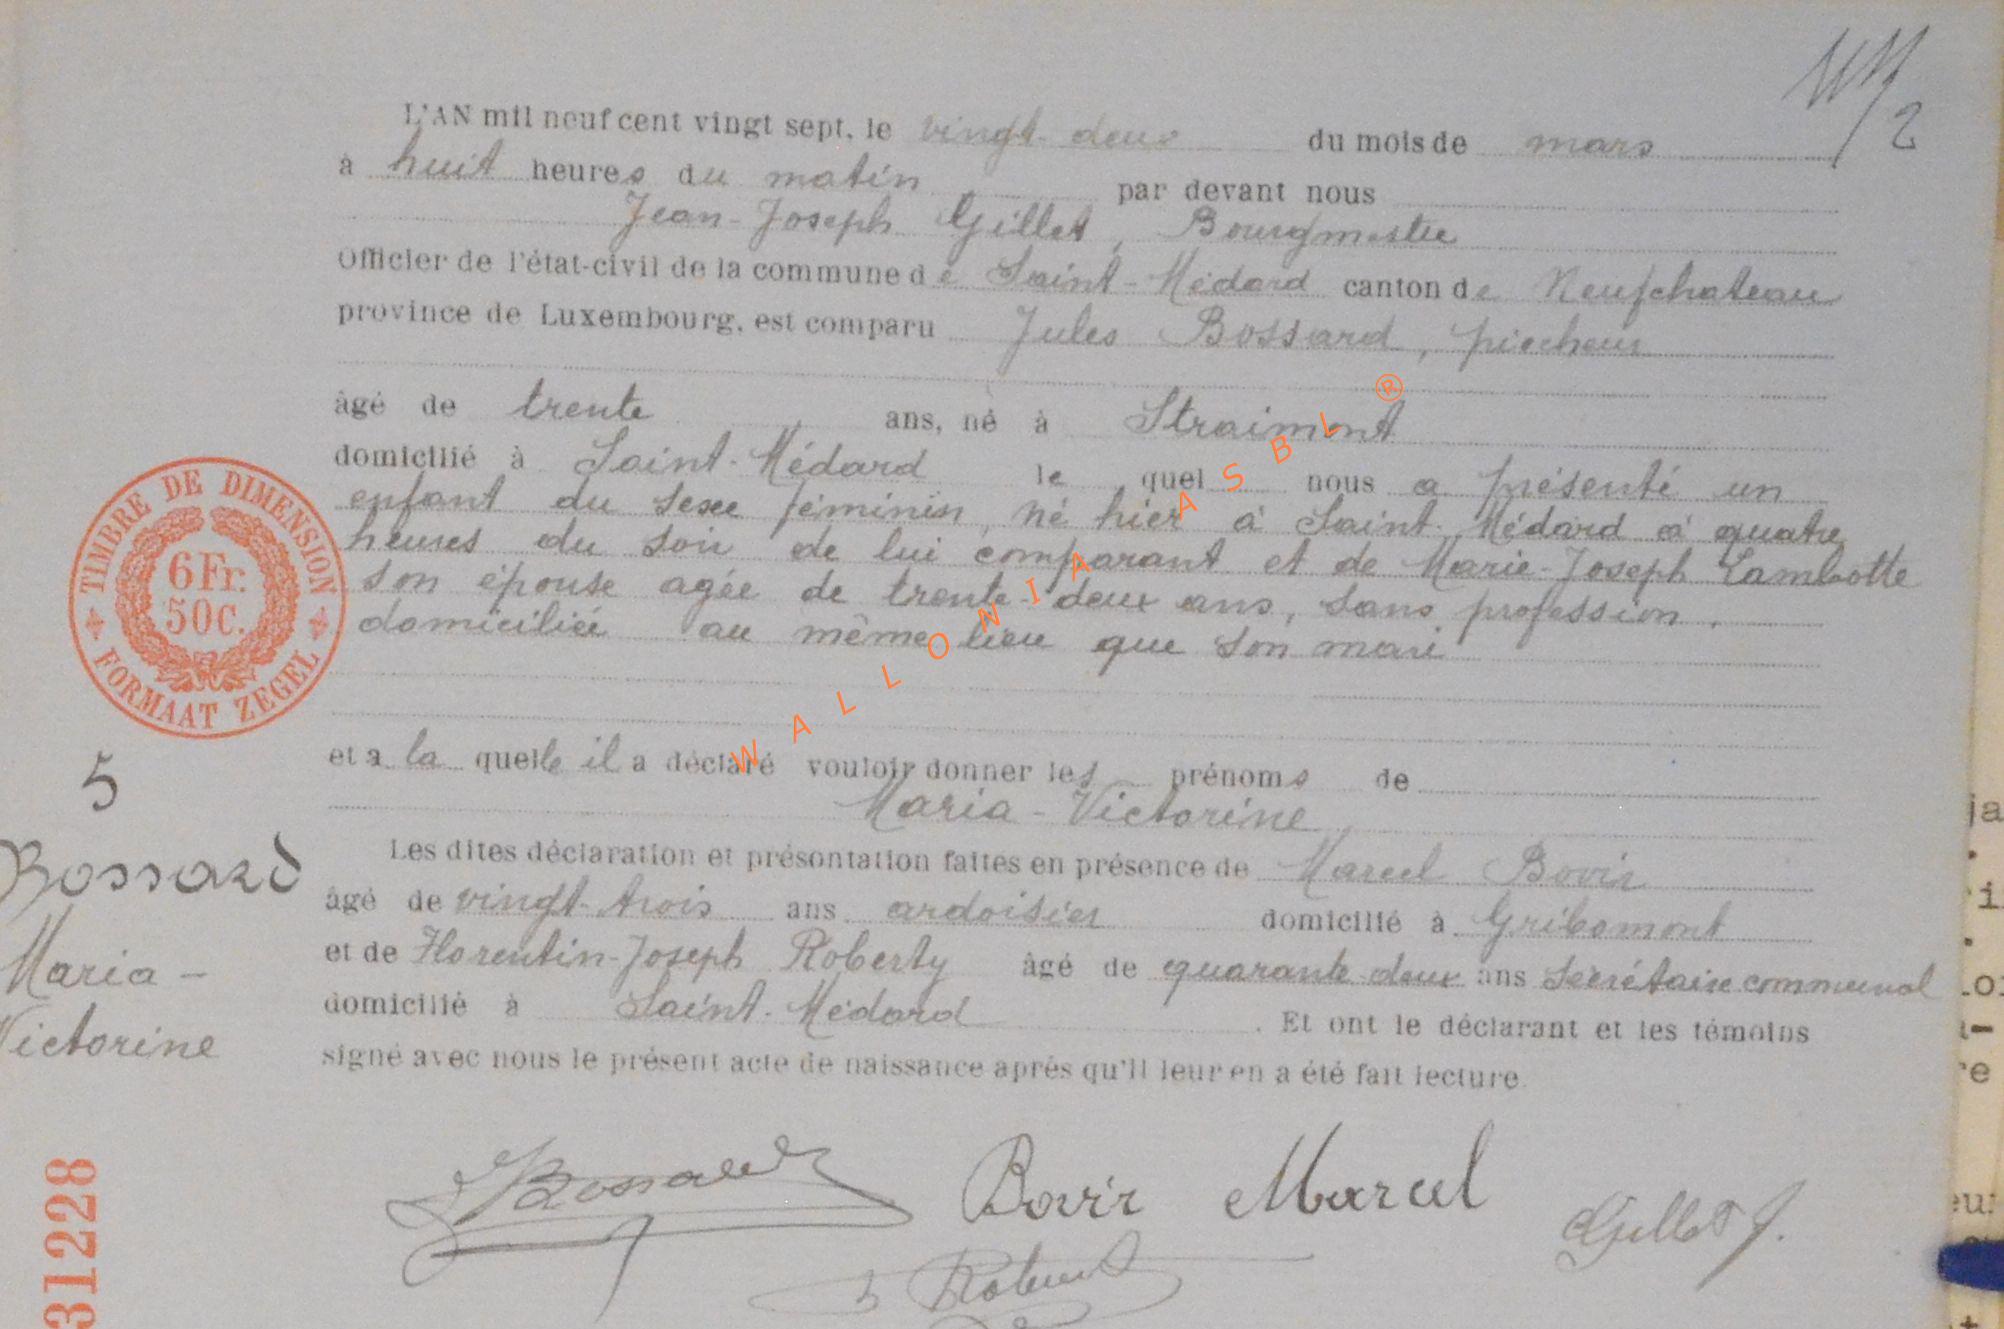 L'AN mil neuf cent vingt sept, le vingt-deux du mois de mars
à huit heures du matin par devant nous
Jean-Joseph Gillet, Bourgmestre
Officier de l'état-civil de la commune de Saint-Médard canton de Neufchateau
province de Luxembourg, est comparu Jules Bossard, piocheur
âgé de trente ans, né à Straimont
domicilié à Saint-Médard le quel nous a présenté un
enfant du sexe féminin, né hier à Saint-Médard à quatre
heures du soir de lui comparant et de Marie-Joseph Lambotte
son épouse agée de trente-deux ans, sans profession,
domiciliée au même lieu que son mari
et a la quelle il a déclaré vouloir donner les prénoms de
Maria-Victorine
Les dites déclaration et présontation faites en présence de Marcel Bovir
âgé de vingt-trois ans ardoisier domicilié à Gribomont
et de Florentin-Joseph Roberty âgé de quarante-deux ans secrétaire communal
domicilié à Saint-Médard. Et ont le déclarant et les témoins
signé avec nous le présent acte de naissance aprés qu'il leur en a été fait lecture.
J Bossard Bovir Marcel Gillet J.
TIMBRE DE DIMENSION
6 Fr.
50 c.
FORMAAT ZEGEL
5
Bossard
Maria-
Victorine
31228
2
WALLONIA ASBL ®